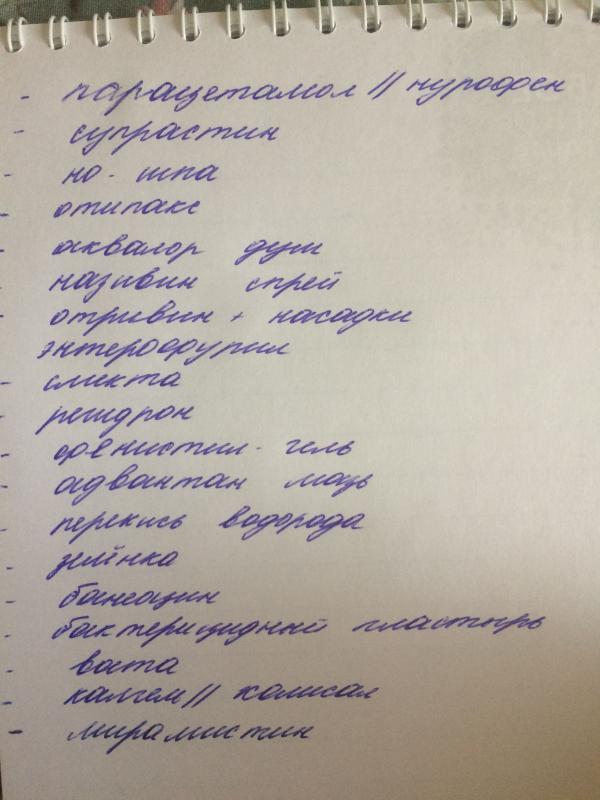 - парацетамол // нурофен
- супрастин
- но-шпа
- отипакс
- аквалор душ
- називин спрей
- отривин + насадки
энтерофурил
- смекта
- регидрон
- фенистил-гель
- адвантан мазь
- перекись водорода
- зелёнка
- банеоцин
- бактерицидный пластырь
- вата
- калгель // камисал
- мирамистин